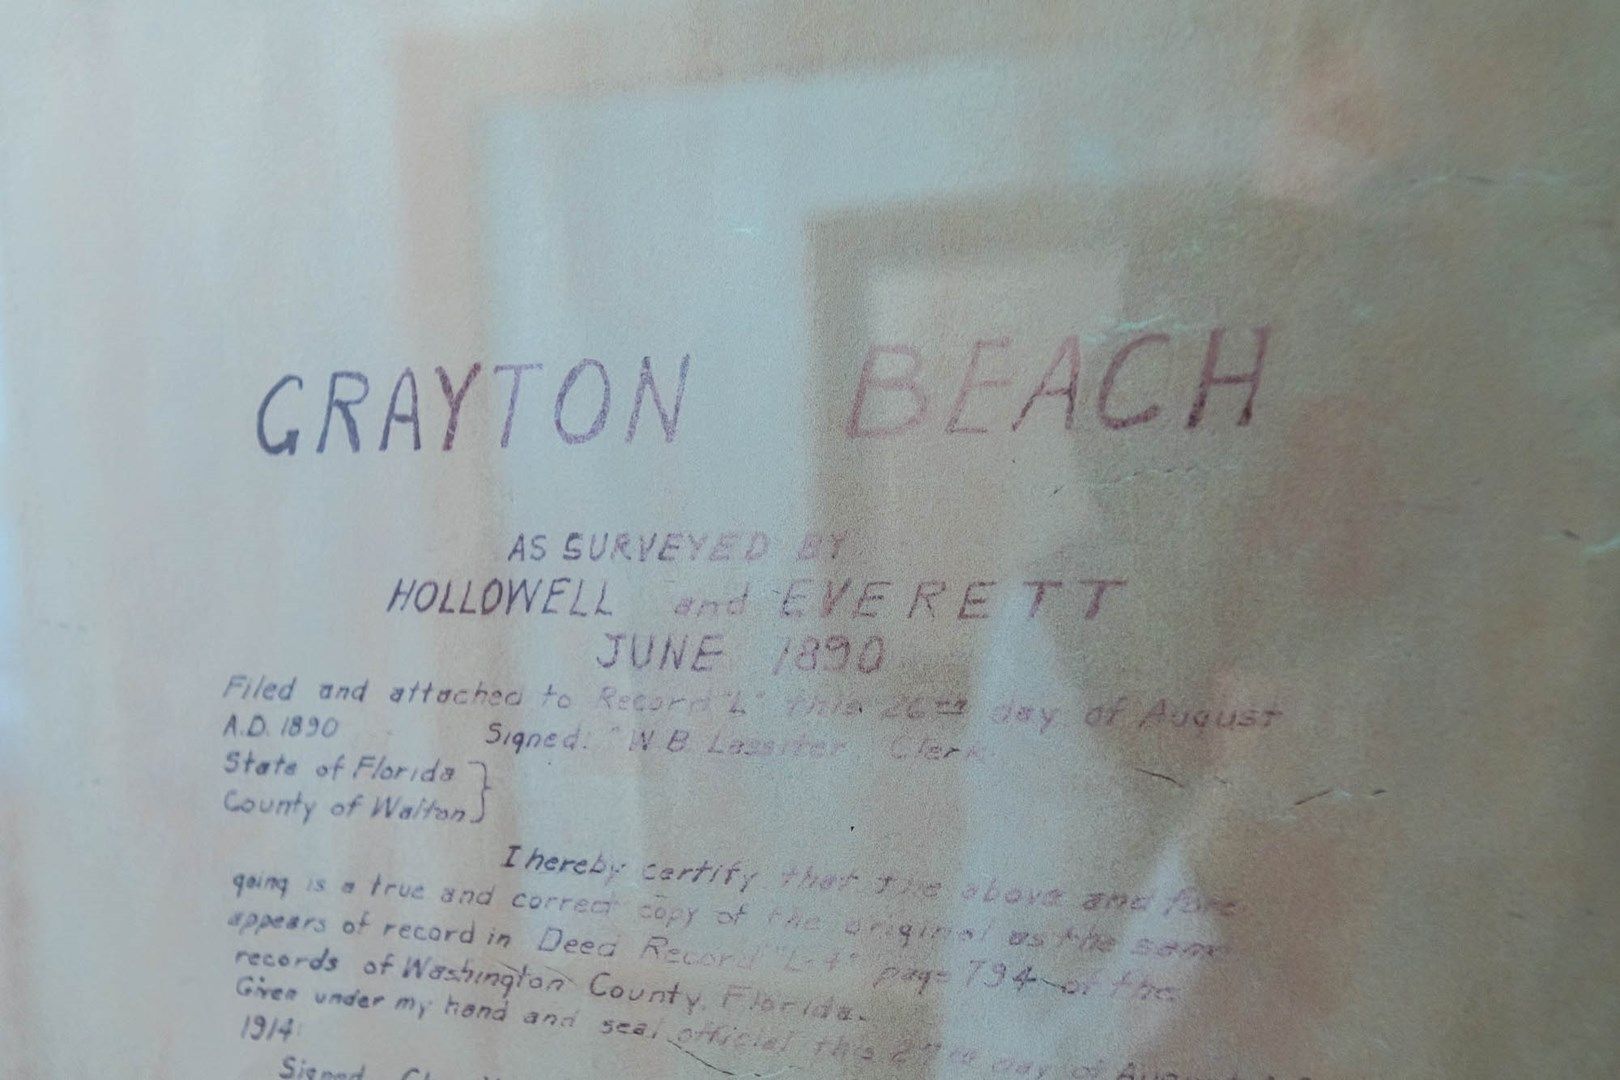 GRAYTON BEACH
AS SURVEYED BY
HOLLOWELL and EVERETT
JUNE 1890
Filed and attached to Record "L" this 26th day of August
A.D. 1890 Signed: "W B Lassiter Clerk
State of Florida
County of Walton
I hereby certify that the above and fore
going is a true and correct copy of the original as the same
appears of record in Deed Record "L-4" page 794 of the
records of Washington County, Florida.
Given under my hand and seal official this day of
1914
Signed